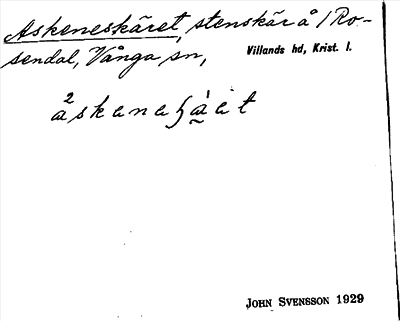 Askeneskäret, stenskär å /Ro-
sendal, Vånga sn, Villands hd, Krist. l.
JOHN SVENSSON 1929